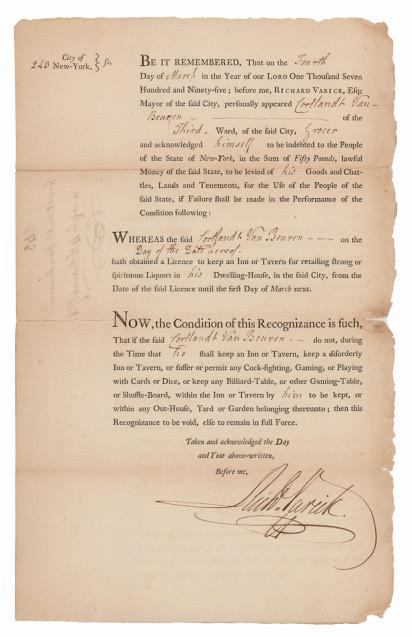 City of
249 New-York, } ss.
BE IT REMEMBERED, That on the Fourth
Day of March in the Year of our LORD One Thousand Seven
Hundred and Ninety-five; before me, RICHARD VARICK, Esq;
Mayor of the said City, personally appeared Cortlandt Van-
Beuren — of the
Third. Ward, of the said City, Grocer
and acknowledged himself to be indebted to the People
of the State of New-York, in the Sum of Fifty Pounds, lawful
Money of the said State, to be levied of his Goods and Chat-
tles, Lands and Tenements, for the Use of the People of the
said State, if Failure shall be made in the Performance of the
Condition following :
WHEREAS the said Cortlandt Van Beuren - — - on the
Day of the Date hereof.
hath obtained a Licence to keep an Inn or Tavern for retailing strong or
spirituous Liquors in his Dwelling-House, in the said City, from the
Date of the said Licence until the first Day of March next.
NOW, the Condition of this Recognizance is such,
That if the said Cortlandt Van Beuren - — do not, during
the Time that he shall keep an Inn or Tavern, keep a disorderly
Inn or Tavern, or suffer or permit any Cock-fighting, Gaming, or Playing
with Cards or Dice, or keep any Billiard-Table, or other Gaming-Table,
or Shuffle-Board, within the Inn or Tavern by him to be kept, or
within any Out-House, Yard or Garden belonging thereunto ; then this
Recognizance to be void, else to remain in full Force.
Taken and acknowledged the Day
and Year above-written,
Before me,
Richd. Varick.